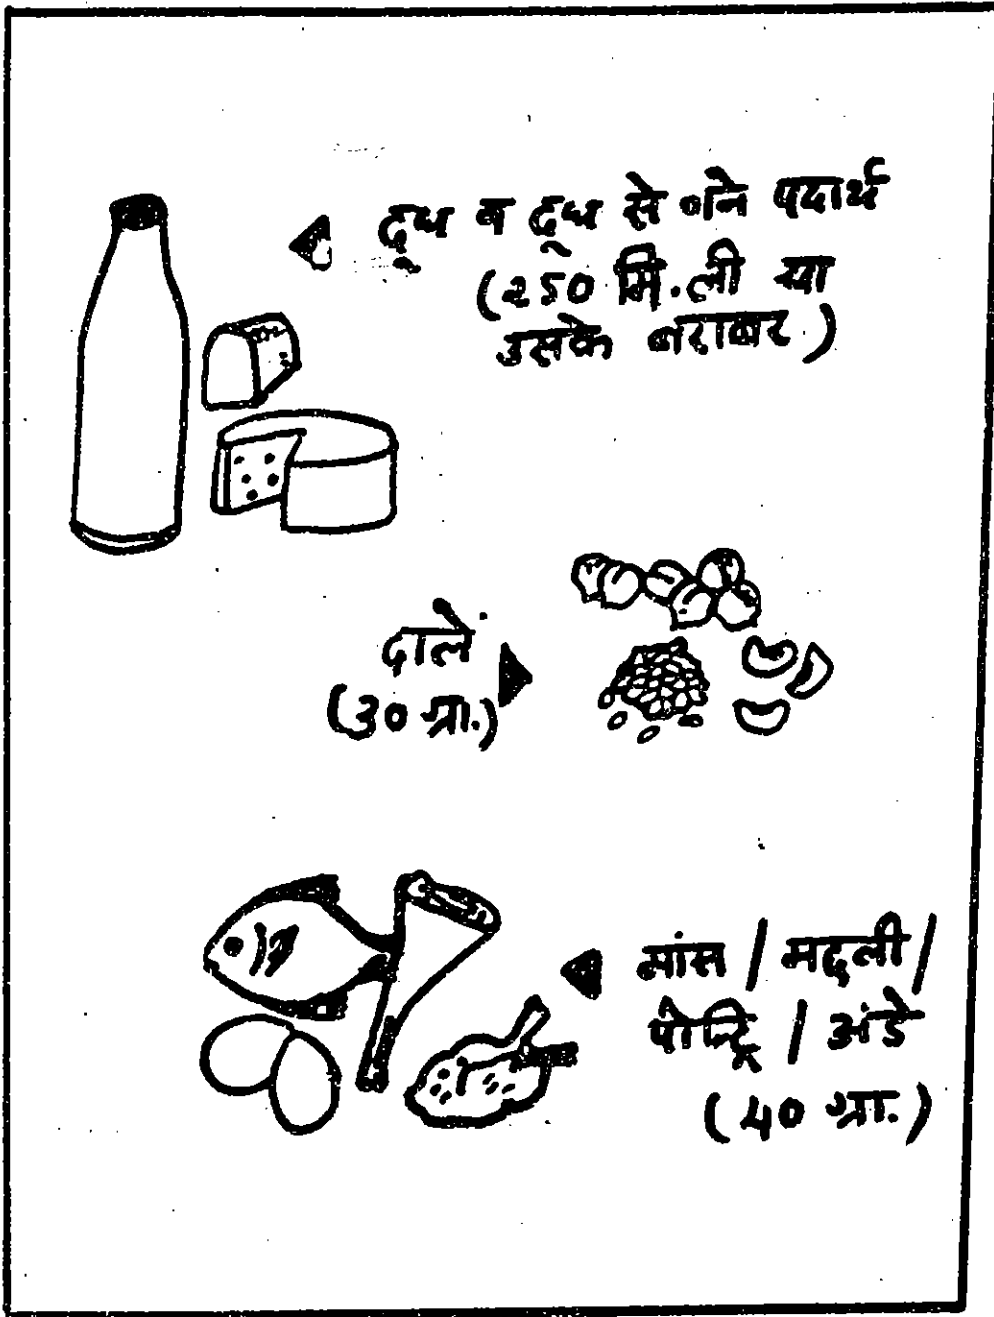 दूध व दूध से बने पदार्थ
(250 मि.ली या
उसके बराबर)
दालें
(30 ग्रा.)
मांस / मछली /
पोल्ट्रि / अंडे
(40 ग्रा.)